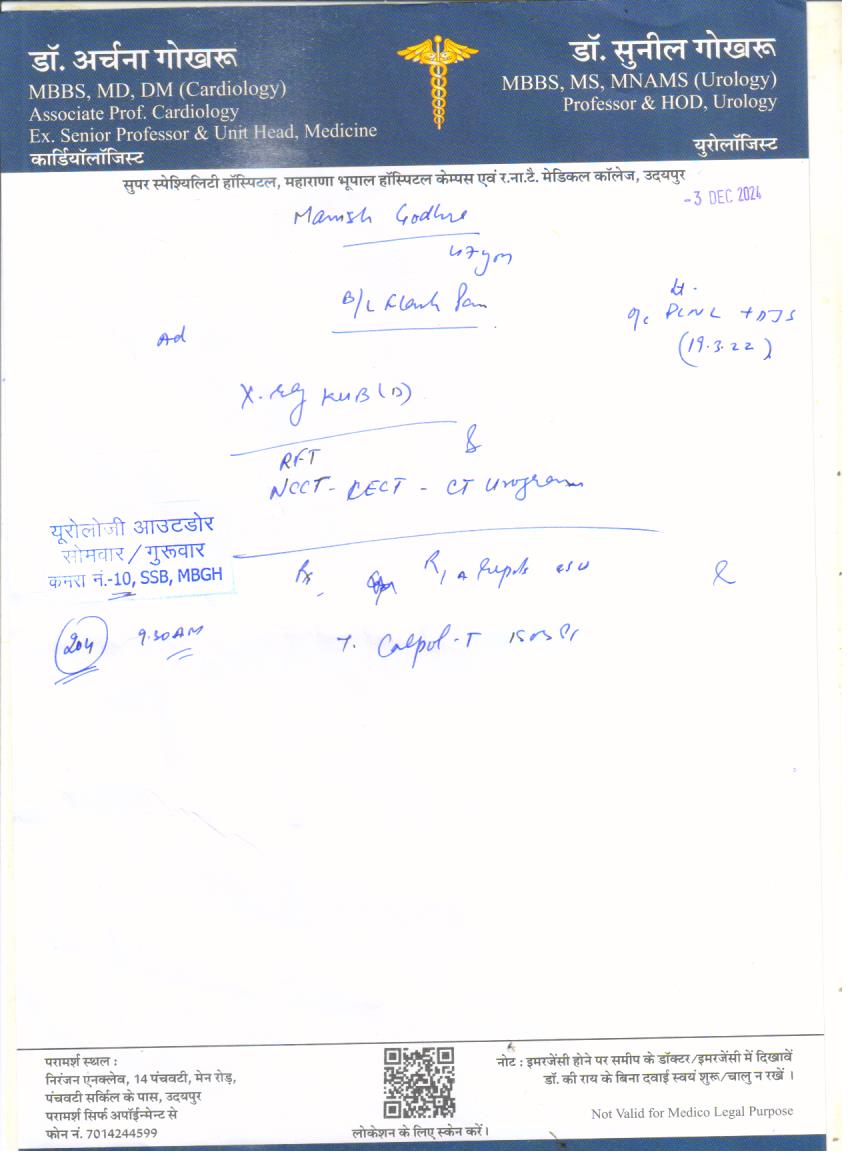 डॉ. अर्चना गोखरू
MBBS, MD, DM (Cardiology)
Associate Prof. Cardiology
Ex. Senior Professor & Unit Head, Medicine
कार्डियॉलॉजिस्ट
डॉ. सुनील गोखरू
MBBS, MS, MNAMS (Urology)
Professor & HOD, Urology
युरोलॉजिस्ट
सुपर स्पेश्यिलिटी हॉस्पिटल, महाराणा भूपाल हॉस्पिटल केम्पस एवं र.ना.टै. मेडिकल कॉलेज, उदयपुर
-3 DEC 2024
Manish
47
B/L Flank Pain
PCNL + DJS
(19.3.22)
Ad
X-ray KUB (D)
&
RFT
NCCT - CECT - CT Urogram
यूरोलोजी आउटडोर
सोमवार / गुरूवार
कमरा नं.-10, SSB, MBGH
Rx
204 9.30 AM
T. Calpol-T
परामर्श स्थल :
निरंजन एनक्लेव, 14 पंचवटी, मेन रोड़,
पंचवटी सर्किल के पास, उदयपुर
परामर्श सिर्फ अपॉईन्मेन्ट से
फोन नं. 7014244599
लोकेशन के लिए स्केन करें।
नोट : इमरजेंसी होने पर समीप के डॉक्टर/इमरजेंसी में दिखावें
डॉ. की राय के बिना दवाई स्वयं शुरू/चालु न रखें ।
Not Valid for Medico Legal Purpose